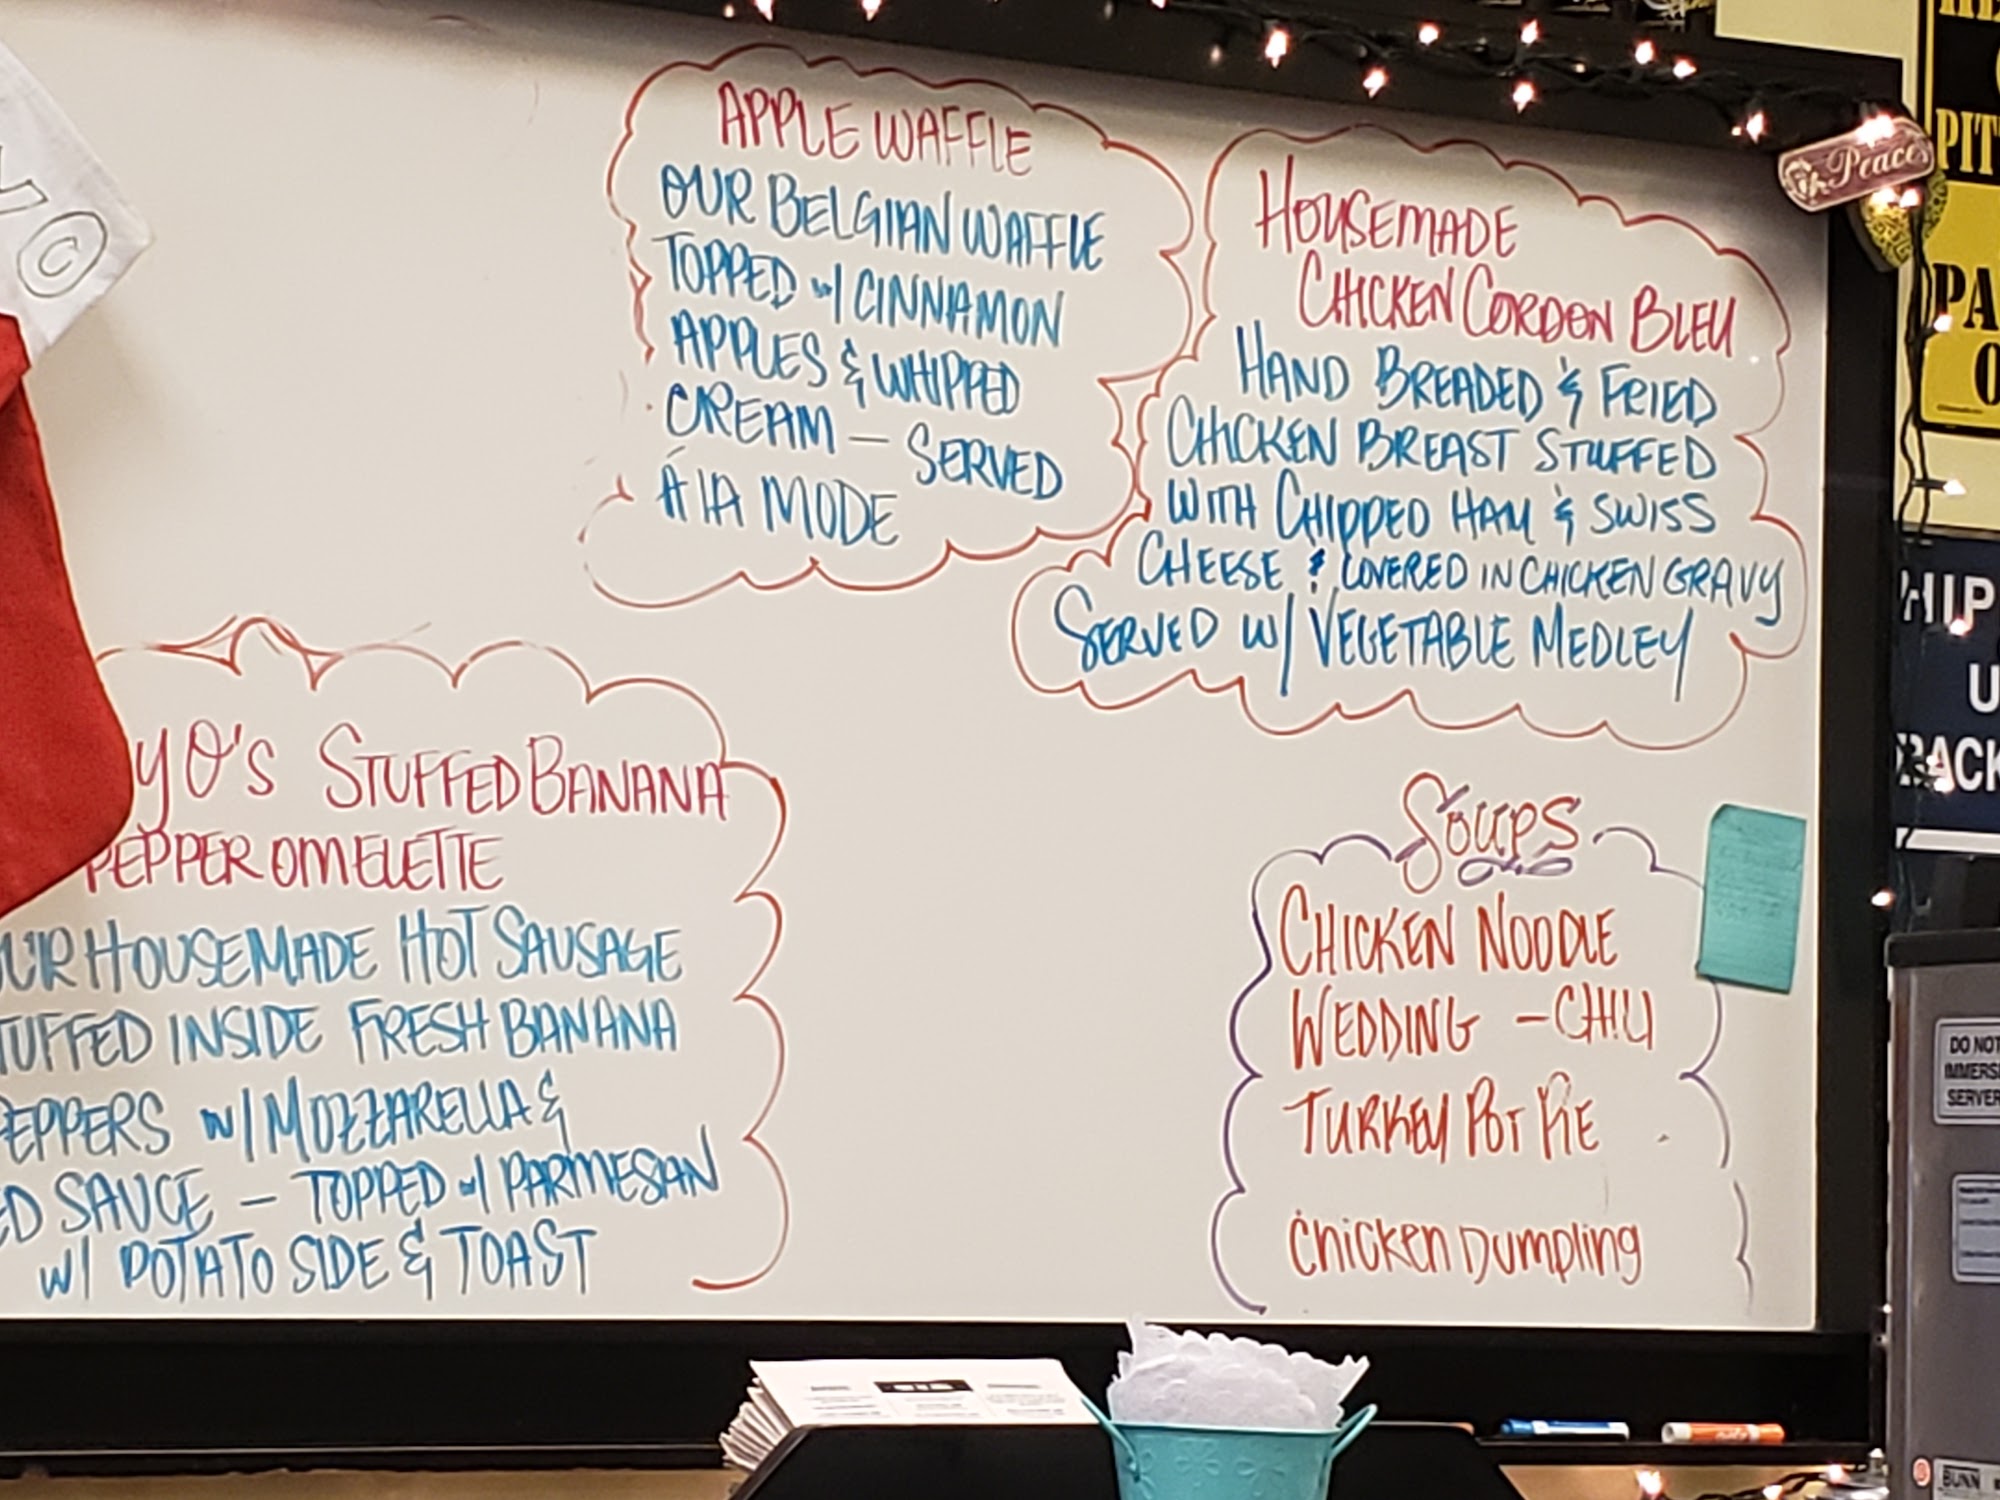 APPLE WAFFLE
OUR BELGIAN WAFFLE
TOPPED w/ CINNAMON
APPLES & WHIPPED
CREAM — SERVED
Á LA MODE
HOUSEMADE
CHICKEN CORDON BLEU
HAND BREADED & FRIED
CHICKEN BREAST STUFFED
WITH CHIPPED HAM & SWISS
CHEESE & COVERED IN CHICKEN GRAVY
SERVED W/ VEGETABLE MEDLEY
YO'S STUFFED BANANA
PEPPER OMELETTE
OUR HOUSEMADE HOT SAUSAGE
TUFFED INSIDE FRESH BANANA
PEPPERS w/ MOZZARELLA &
ED SAUCE — TOPPED w/ PARMESAN
W/ POTATO SIDE & TOAST
SOUPS
CHICKEN NOODLE
WEDDING — CHILI
TURKEY POT PIE
Chicken Dumpling
Peace
PIT
PA
O
HIP
U
RACK
DO NOT
IMMERSE
SERVER
BUNN
©